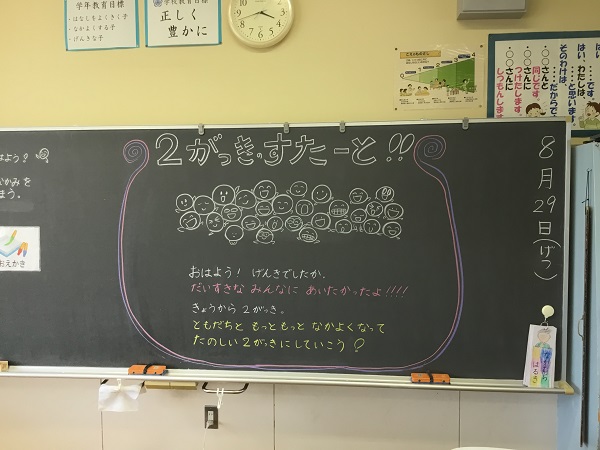 学年教育目標
・はなしをよくきく子
・なかよくする子
・げんきな子
学校教育目標
正しく
豊かに
こえのものさし
・・・です。
はい、わたしは、
・・・と思います。
そのわけは、
・・・だからです。
○○さんと
同じです。
○○さんに
つけたします。
○○さんに
しつもんします。
はよう?
なかみを
よう。
おえかき
2がっきすたーと!!
おはよう! げんきでしたか。
だいすきな みんなに あいたかったよ!!!!
きょうから 2がっき。
ともだちと もっともっと なかよくなって
たのしい2がっきにしていこう
8月29日(げつ)